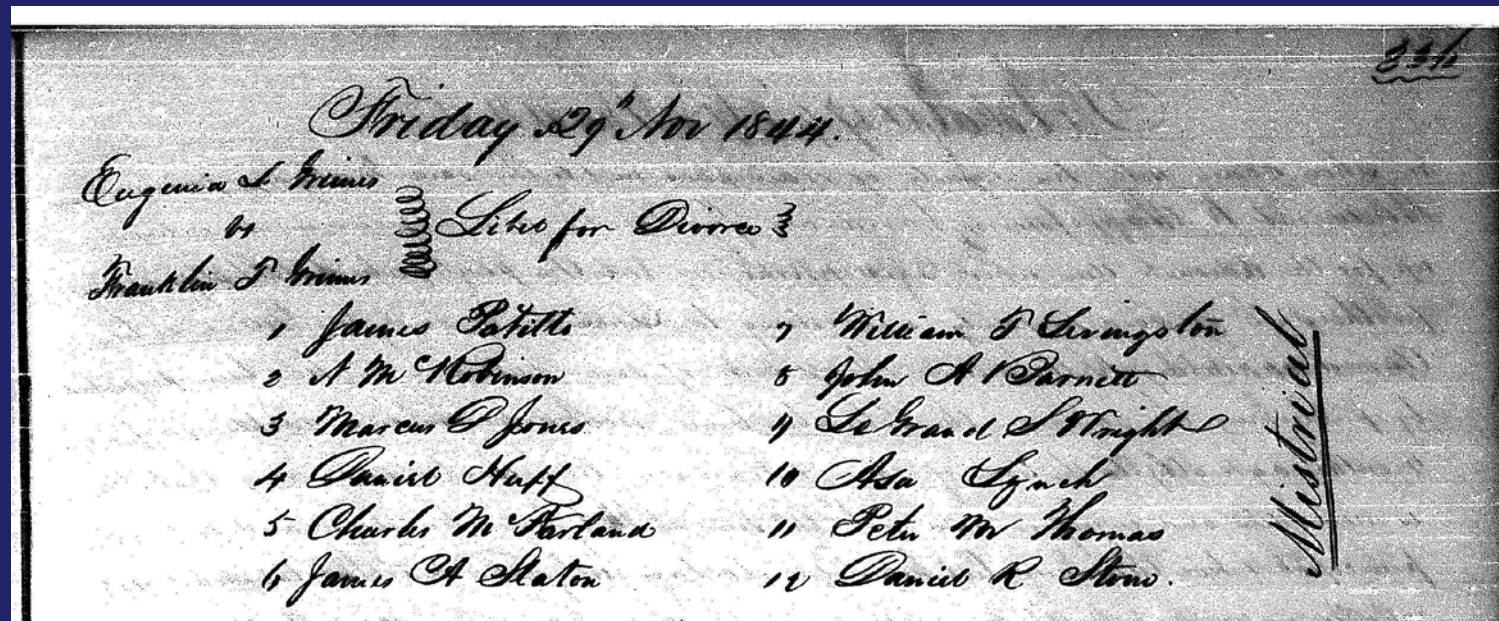 Friday 29th Nov 1844.
Eugenia L Grimes
vs
Libel for Divorce
Franklin T Grimes
1 James
2 A M Robinson
3 Marcus D Jones
4 Daniel Huff
5 Charles McFarland
6 James A Slaton
7 William T Livingston
8 John A Barnett
9 LeGrand S Wright
10 Asa Lynch
11 Peter M Thomas
12 Daniel R Stone.
Mistrial